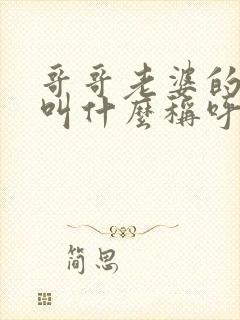 哥哥老婆的
叫什麼稱呼
简思